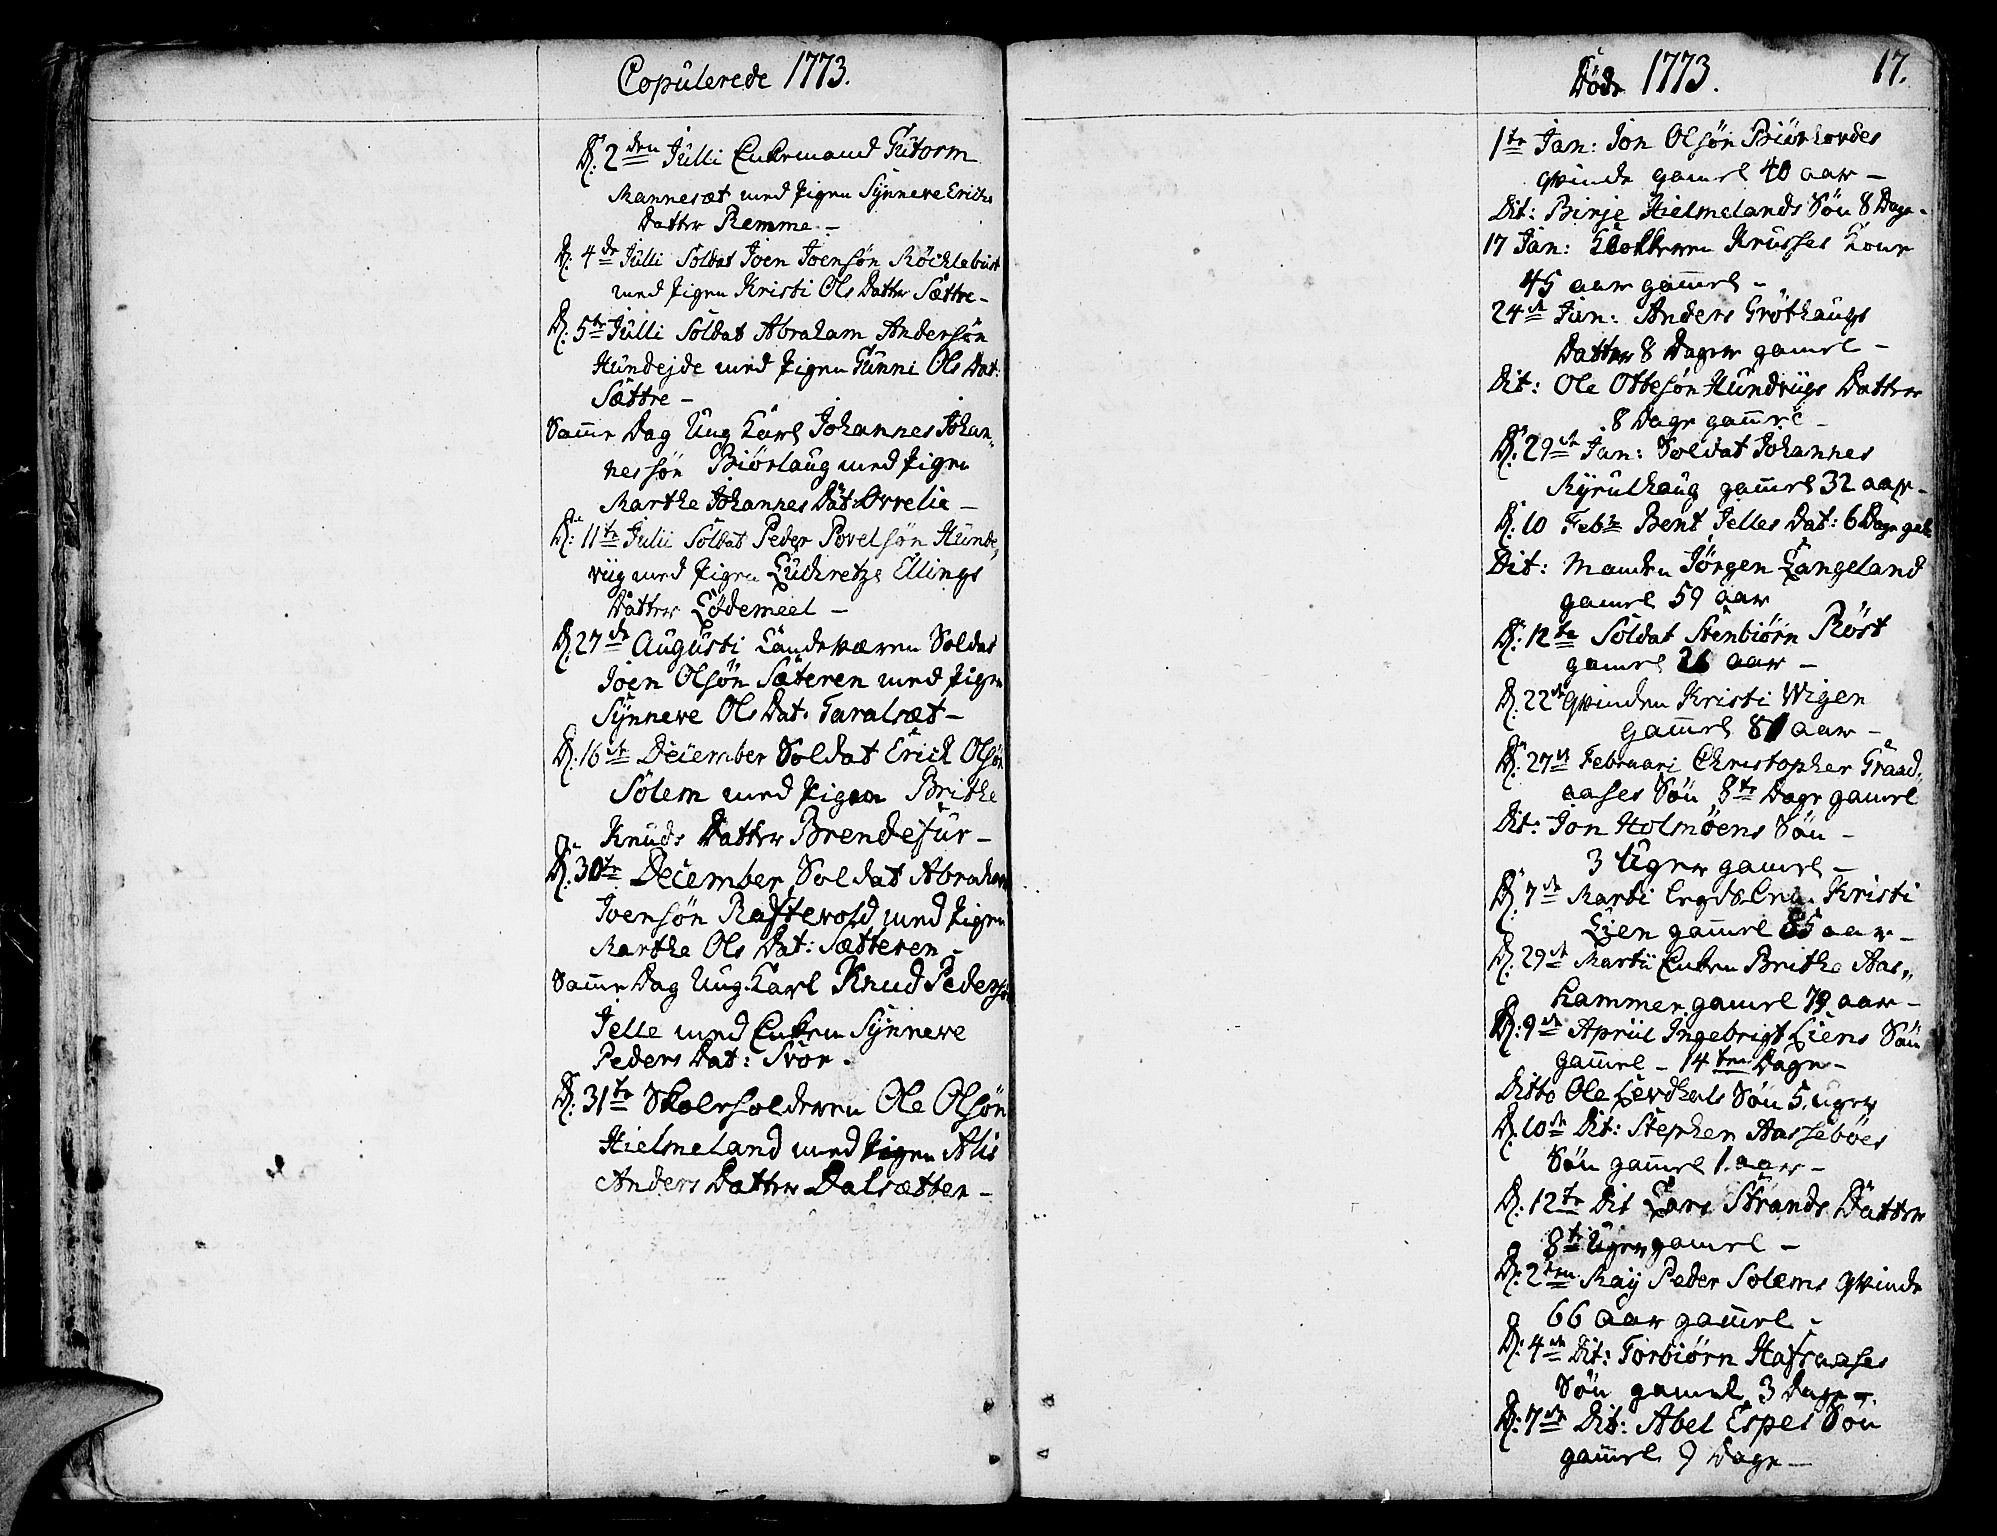 Copulerede 1773.
D. 2den Julli Enkemand Gutorm
Mannesæt med Pigen Synneve Erichs
Datter Remme –
D. 4de Julli Soldat Joen Joensøn Röcklebust
med Pigen Kristi Ols Datter Sættre –
D. 5te Julli Soldat Abraham Andersøn
Hundejde med Pigen Gunni Ols Dat:
Sættre –
Samme Dag Ung Karl Johannes Johan„
nessøn Biörlaug med Pigen
Marthe Johannes Dat: Orrelie –
D: 11te Julii Soldat Peder Povelsøn Hunde„
viig med Pigen Luckretze Ellings
Datter Lödemeel –
D. 27de Augusti Landeværen Soldat
Joen Olsøn Sæteren med Pigen
Synneve Ols Dat. Taralsæt –
D. 16de December Soldat Erich Olsøn
Solem med Pigen Brithe
Knuds Datter Brendefur –
D. 30te December Soldat Abraham
Joensøn Raftevold med Pigen
Marthe Ols Dat: Sætteren –
Samme Dag Ung Karl Knud Pedersøn
Jelle med Enken Synneve
Peders Dat: Svor.
D. 31te Skoleholderen Ole Olsøn
Hielmeland med Pigen Alis
Anders Datter Dalsætter –
Döde 1773.
17.
1te Jan: Jon Olsøn Biörhovdes
qvinde gamel 40 aar –
Dit: Birje Hielmelands Søn 8 Dage –
17 Jan: Klokkeren Krusses Kone
45 aar gammel –
24de Jan: Anders Gröthaugs
Datter 8 Dager gamel –
Dit: Ole Ottesøn Hundviigs Datter
8 Dage gammel –
D. 29de Jan: Soldat Johannes
Myrulhaug gammel 32 aar –
D. 10 Febr: Bent Jelles Dat: 6 Dage gal:
Dit: Manden Jörgen Langeland
gamel 59 aar
D. 12te Soldat Stenbiörn Röst
gamel 26 aar –
D. 22de Qvinden Kristi Wigen
gammel 81 aar –
D. 27de Februari Christopher Graad„
aases Søn 8te Dage gamel
Dit: Jon Holmöens Søn –
3 Uger gamel –
D. 7de Marti Kristi
Lien gammel 85 aar –
D. 29de Martii Enken Brithe Aas„
hammer gamel 79 aar –
D. 9de Apriil Ingebrigt Liens Søn
gammel – 14ten Dage –
Ditto Ole Levdhals Søn 5 uger
D. 10de Dit: Stephen Aassebøes
Søn gamel 1. aar –
D. 12te Dit Lars Strands Datter
8te Uger gamel –
D. 2den May Peder Solems qvinde
66 aar gammel –
D. 4de Dit: Torbiörn Hafraases
Søn gamel 3 Dage –
D. 7de Dit: Abel Espes Søn
gammel 9 Dage –